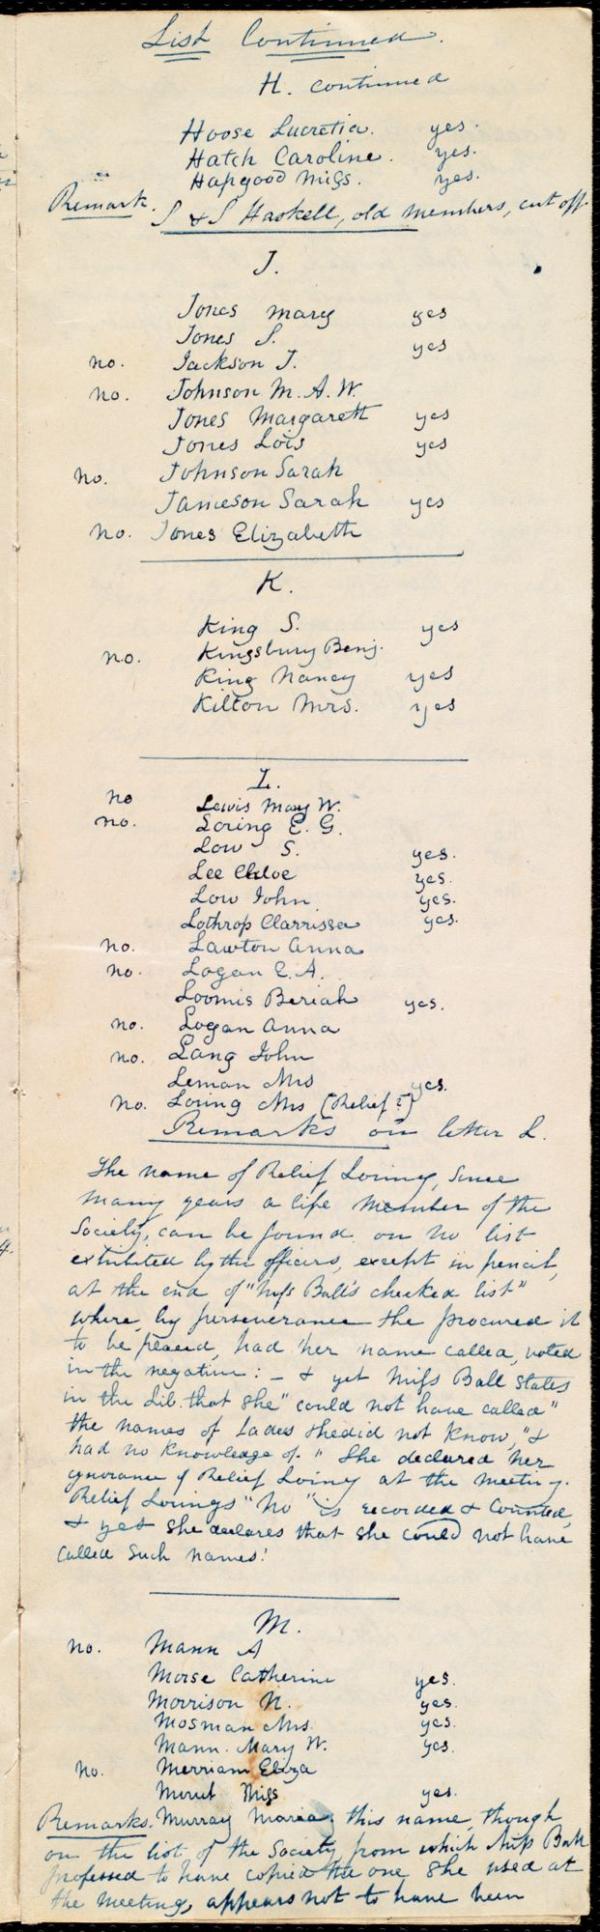 List Continued.
H. continued
Hoose Lucretia. yes.
Hatch Caroline. yes.
Hapgood Miss. yes.
Remark. S & S Haskell, old members, cut off.
J.
Jones Mary yes
Jones S. yes
no. Jackson J.
no. Johnson M. A. W.
Jones Margarett yes
Jones Lois yes
no. Johnson Sarah
Jameson Sarah yes
no. Jones Elizabeth
K.
King S. yes
no. Kingsbury Benj.
King Nancy yes
Kilton Mrs. yes
L.
no Lewis Mary W.
no. Loring E. G.
Low S. yes.
Lee Chloe yes.
Low John yes.
Lothrop Clarrissa yes.
no. Lawton Anna
no. Logan E. A.
Loomis Beriah yes.
no. Logan Anna
no. Lang John
Leman Mrs yes.
no. Loring Mrs (Relief?)
Remarks on letter L.
The name of Relief Loring, since
many years a life member of the
Society, can be found on no list
exhibited by the officers, except in pencil,
at the end of "Miss Ball's checked list"
where, by perseverance she procured it
to be placed, had her name called, voted
in the negative: - & yet Miss Ball states
in the Lib. that she "could not have called"
the names of Ladies she did not know, "&
had no knowledge of." She declared her
ignorance of Relief Loring at the meeting.
Relief Lorings "No" is recorded & counted,
& yet she declares that she could not have
called such names!
M.
no. Mann A
Morse Catherine yes.
Morrison N. yes.
Mosman Mrs. yes.
Mann. Mary W. yes.
no. Merriam Eliza
Miss yes.
Remarks. Murray Maria; this name, though
on the list of the Society from which Miss Ball
professed to have copied the one she used at
the meeting, appears not to have been